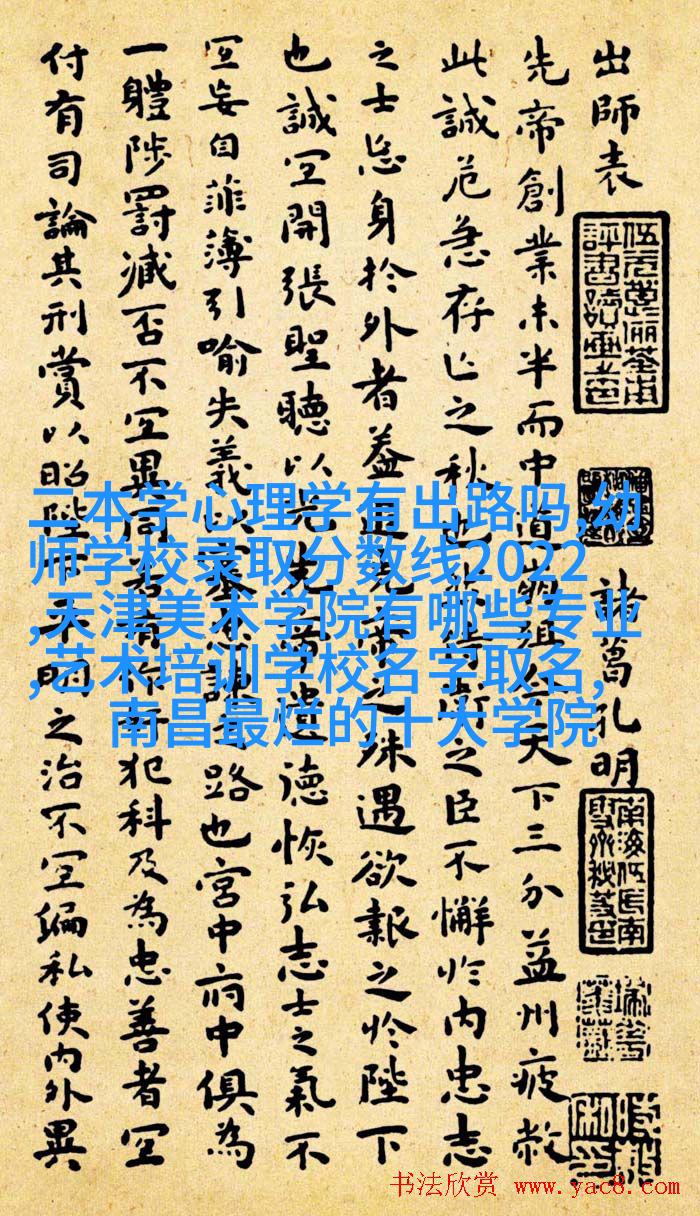 出師表
諸葛孔明
先帝創業未半而中道崩殂今天下三分益州疲敝
此誠危急存亡之秋也然侍衛之臣不懈於內忠志
之士忘身於外者蓋追先帝之殊遇欲報之於陛下
也誠宜開張聖聽以光先帝遺德恢弘志士之氣不
宜妄自菲薄引喻失義以塞忠諫之路也宮中府中俱為
一體陟罰臧否不宜異同若有作奸犯科及為忠善者宜
付有司論其刑賞以昭陛下平明之治不宜偏私使內外異
二本学心理学有出路吗,幼
师学校录取分数线2022
,天津美术学院有哪些专业
,艺术培训学校名字取名,
南昌最烂的十大学院
书法欣赏 www.yac8.com